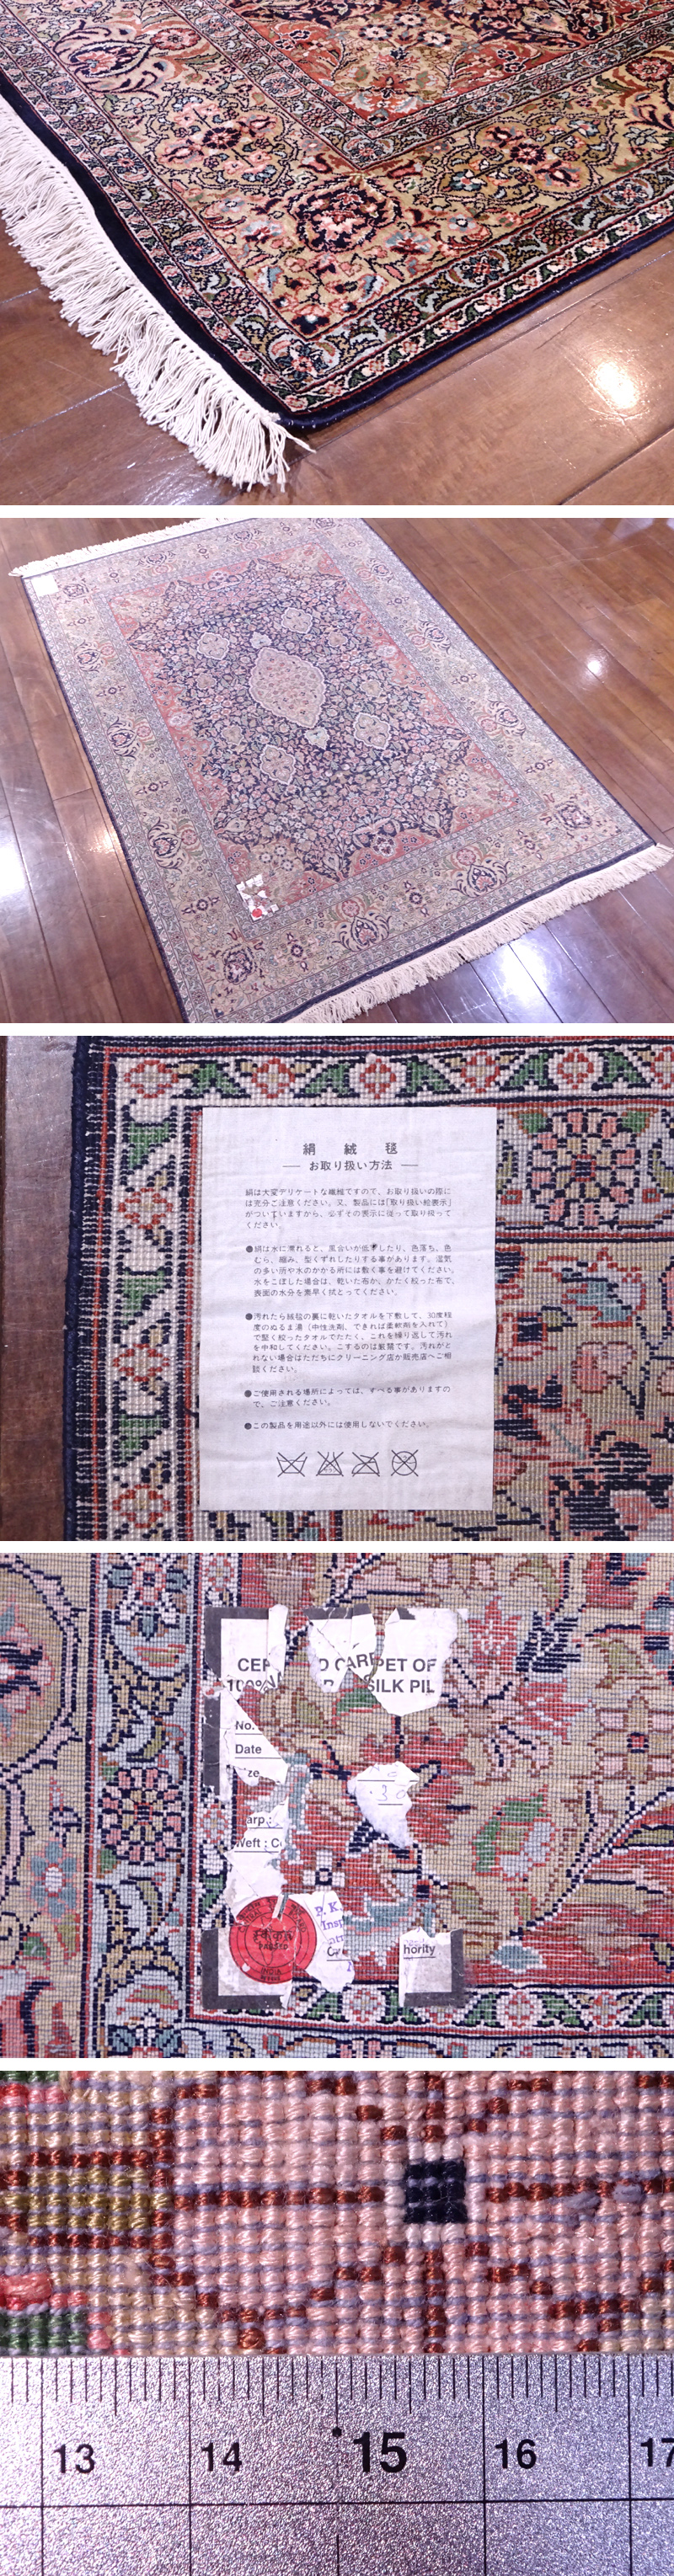 絹 絨 毯
― お取り扱い方法 ―
絹は大変デリケートな繊維ですので、お取り扱いの際に
は充分ご注意ください。又、製品には「取り扱い絵表示」
がついていますから、必ずその表示に従って取り扱って
ください。
●絹は水に濡れると、風合いが低下したり、色落ち、色
むら、縮み、型くずれしたりする事があります。湿気
の多い所や水のかかる所には敷く事を避けてください。
水をこぼした場合は、乾いた布か、かたく絞った布で、
表面の水分を素早く拭とってください。
●汚れたら絨毯の裏に乾いたタオルを下敷して、30度程
度のぬるま湯（中性洗剤、できれば柔軟剤を入れて）
で堅く絞ったタオルでたたく、これを繰り返して汚れ
を中和してください。こするのは厳禁です。汚れがと
れない場合はただちにクリーニング店か販売店へご相
談ください。
●ご使用される場所によっては、すべる事がありますの
で、ご注意ください。
●この製品を用途以外には使用しないでください。
CARPET OF
100% SILK PIL
No.
Date
Weft : C
P. K.
Insp
PASSED
INDIA
hority
13 14 15 16 17